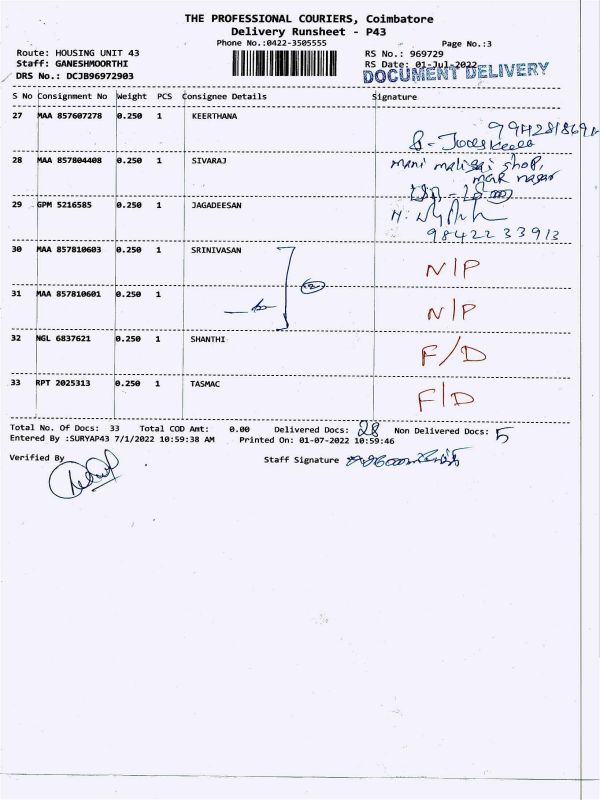 THE PROFESSIONAL COURIERS, Coimbatore
Delivery Runsheet - P43
Phone No.:0422-3505555
Page No.:3
Route: HOUSING UNIT 43
RS No.: 969729
Staff: GANESHMOORTHI
RS Date: 01-Jul-2022
DRS No.: DCJB96972903
DOCUMENT DELIVERY
S No Consignment No Weight PCS Consignee Details Signature
27 MAA 857607278 0.250 1 KEERTHANA
9942818691
28 MAA 857804408 0.250 1 SIVARAJ
mani maligai shop,
nagar
29 GPM 5216585 0.250 1 JAGADEESAN
9842233913
30 MAA 857810603 0.250 1 SRINIVASAN N/P
2
31 MAA 857810601 0.250 1 N/P
32 NGL 6837621 0.250 1 SHANTHI F/D
33 RPT 2025313 0.250 1 TASMAC F/D
Total No. Of Docs: 33 Total COD Amt: 0.00 Delivered Docs: 28 Non Delivered Docs: 5
Entered By :SURYAP43 7/1/2022 10:59:38 AM Printed On: 01-07-2022 10:59:46
Verified By Staff Signature